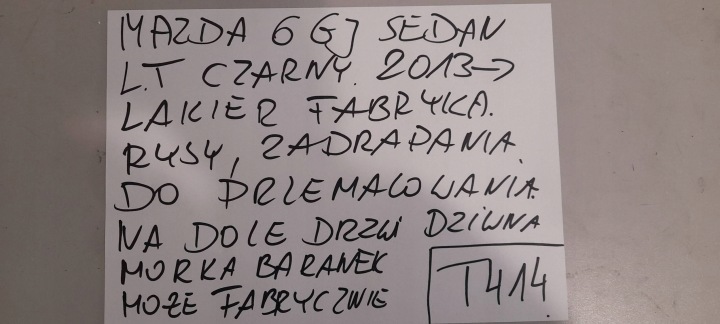 MAZDA 6 GJ SEDAN
L.T CZARNY. 2013->
LAKIER FABRYKA.
RYSY, ZADRAPANIA.
DO PRZEMALOWANIA.
NA DOLE DRZWI DZIWNA
MORKA BARANEK
MOŻE FABRYCZNIE
T414.